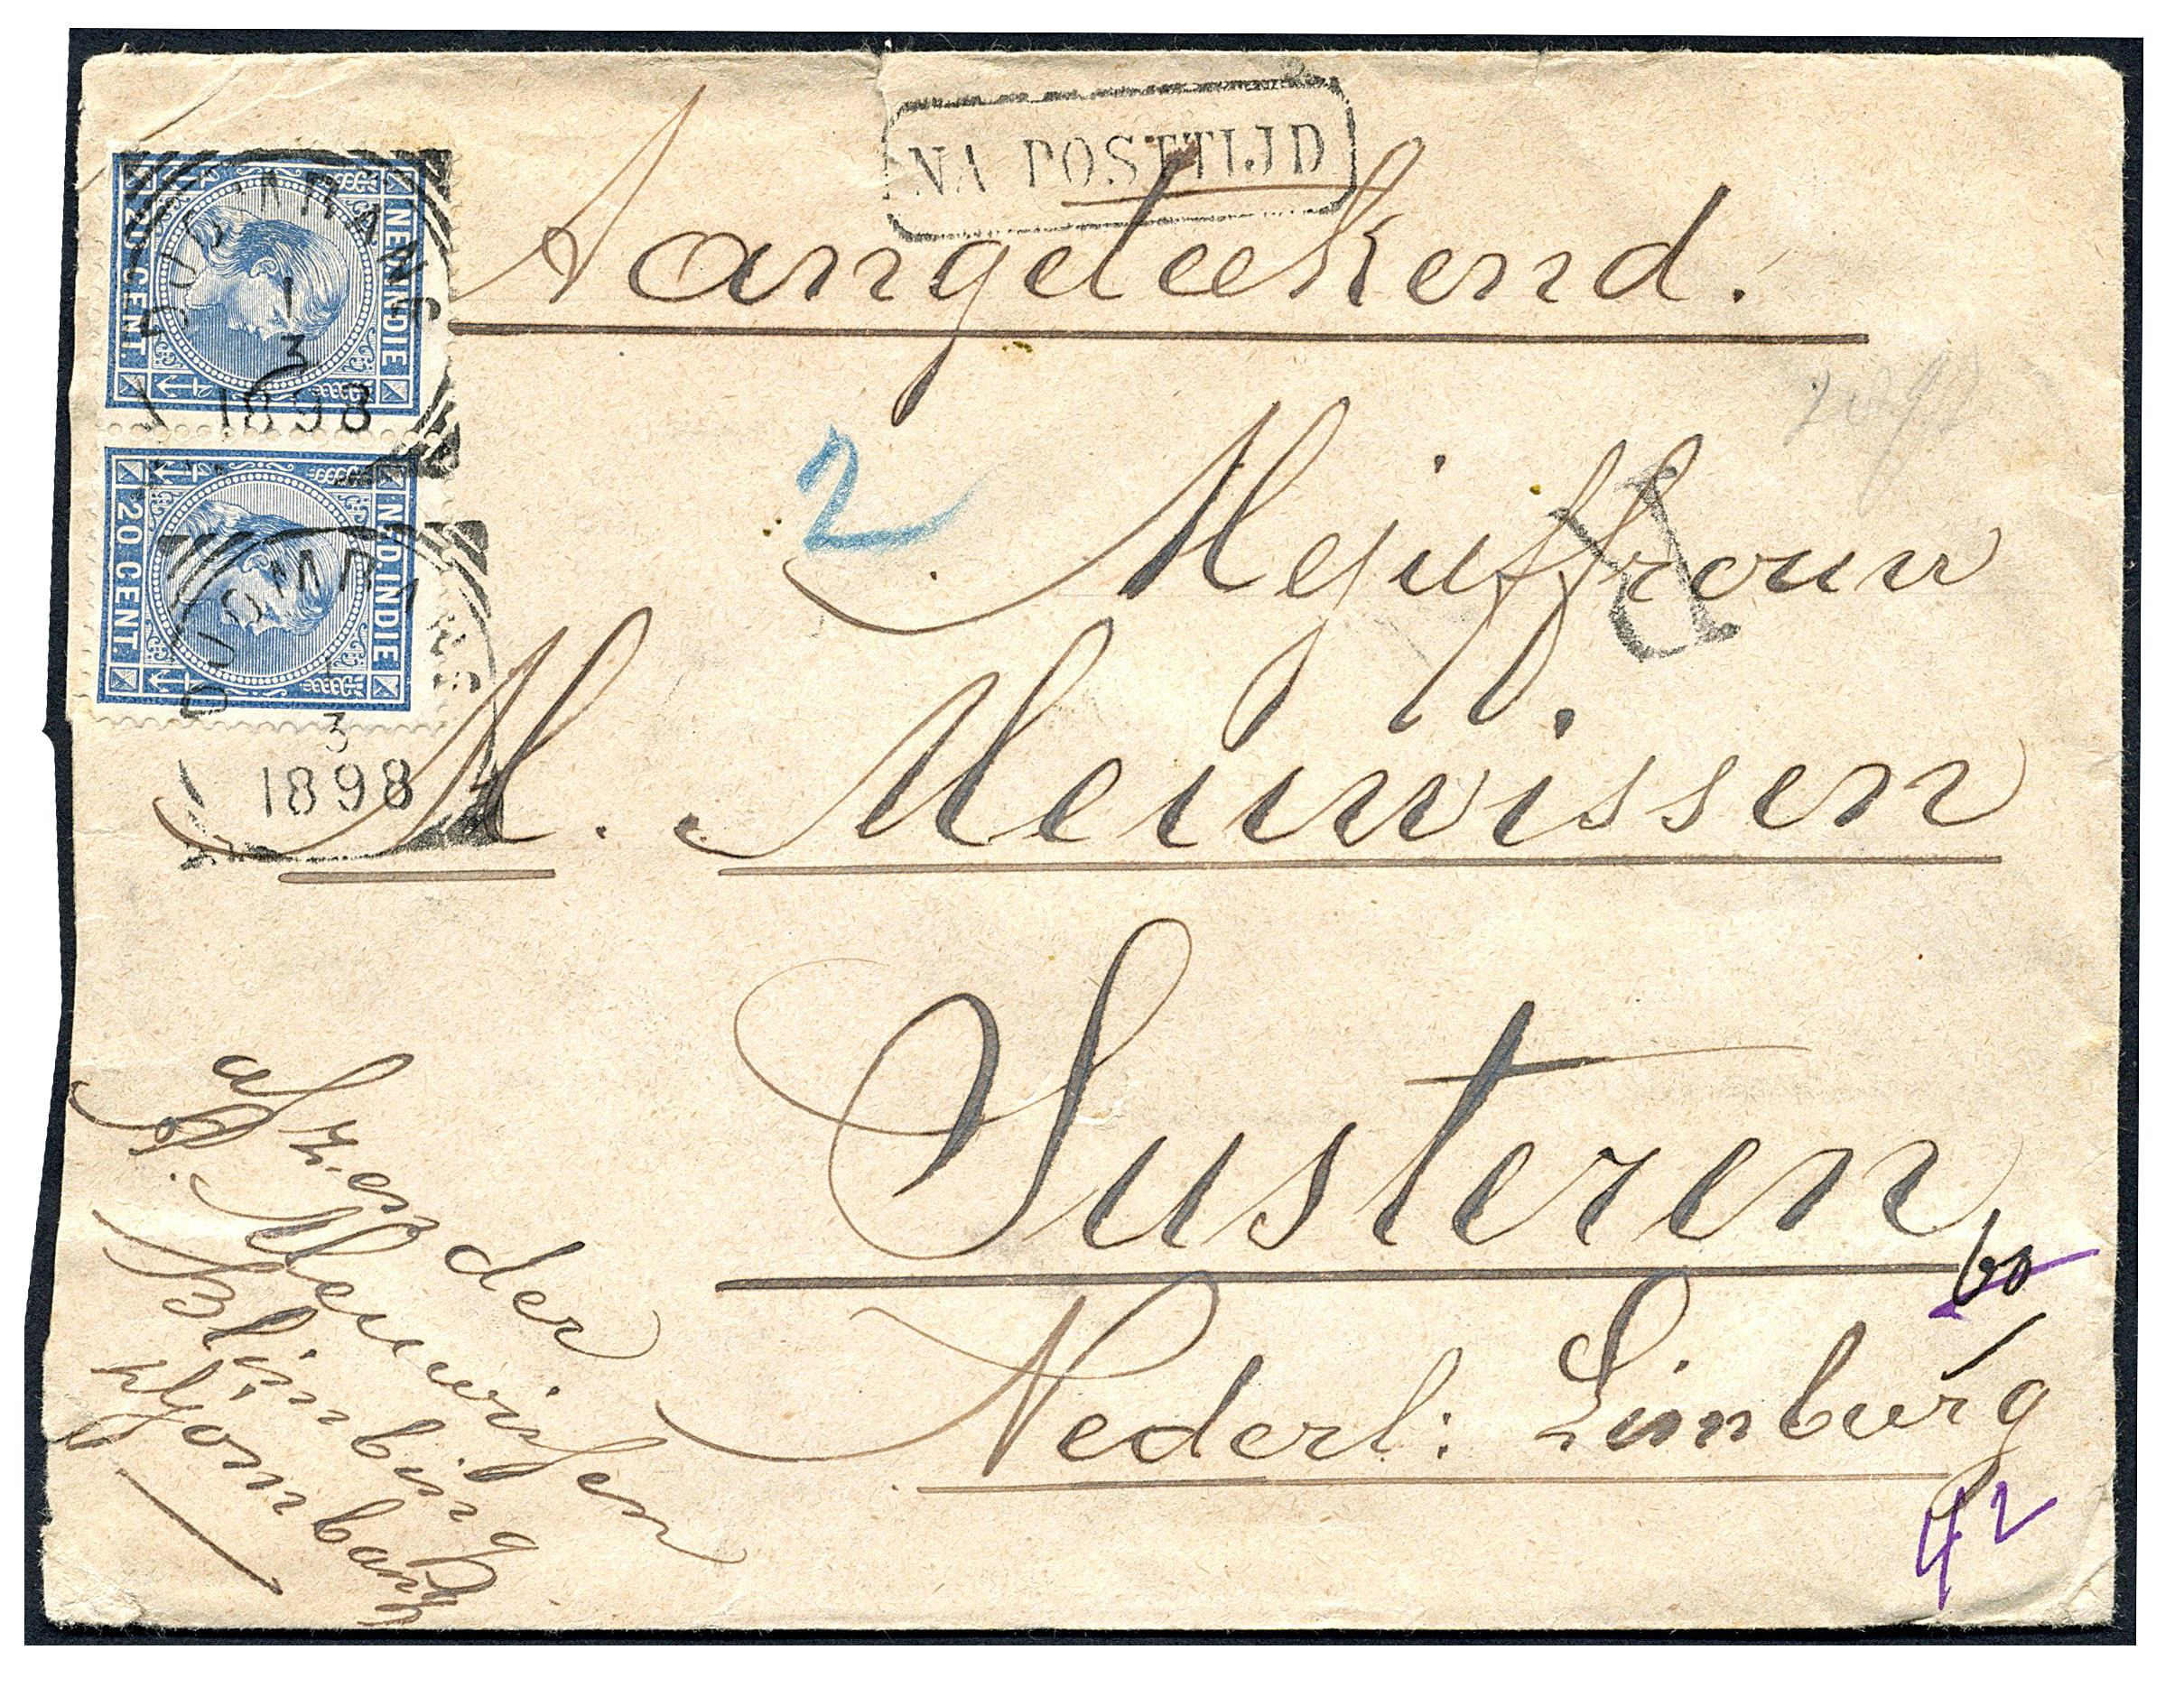 NA POSTTIJD
Aangeteekend.
NED.INDIE
20 CENT.
1
3
1898
NED.INDIE
20 CENT.
3
1898
2
R
Mejuffrouw
M. Meuwissen
Susteren
60
Nederl: Limburg
42
afzender
Meuwissen
Blimbing